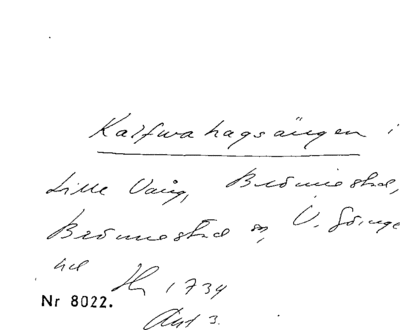 Kalfwahagsängen i
Lille Vång, Brönnestad,
Brönnestad sn, V. Göinge
hd 1734
Nr 8022.
Akt 3.